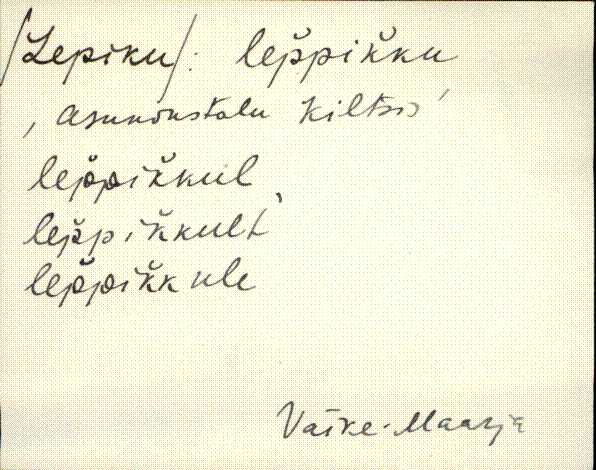 /Lepiku/: lep̆pik̆ku
, asundustalu Kiltsis'
lep̆pik̆kul
lep̆pik̆kult
lep̆pik̆kule
Väike-Maarja